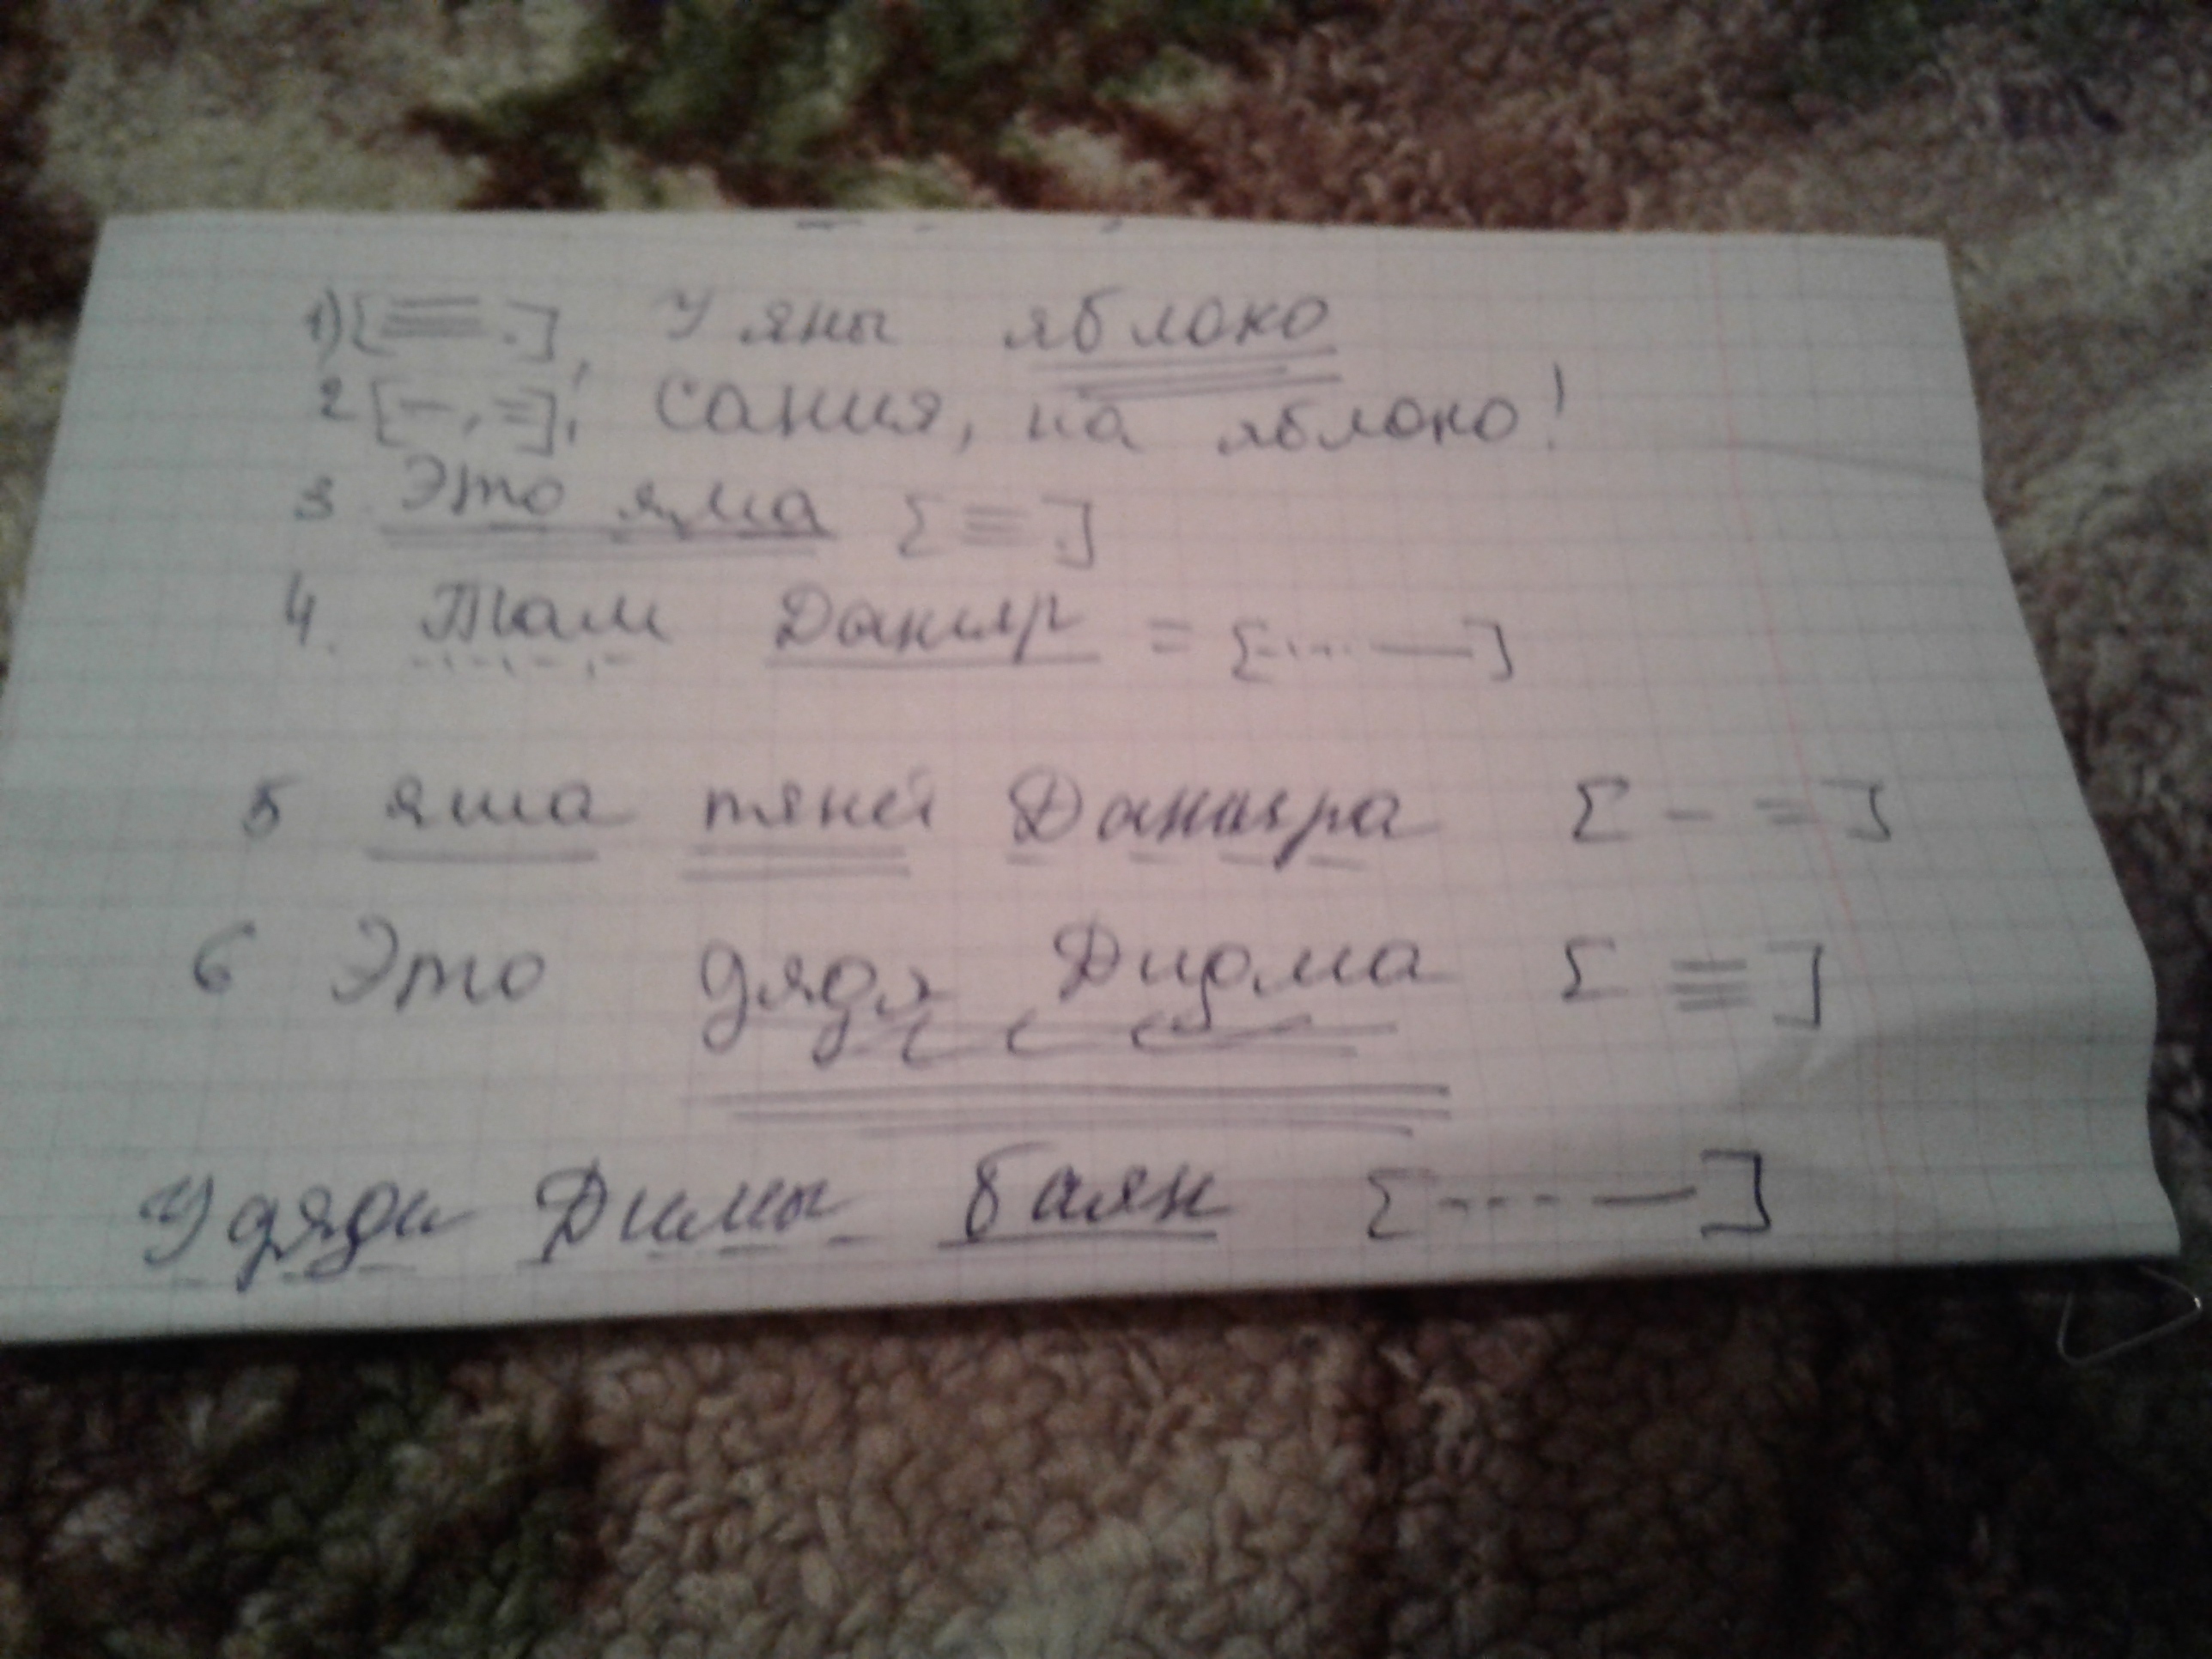 1) [≡.] У яны яблоко
2 [—, =]! Сания, на яблоко!
3 Это яма [≡.]
4. Там Данияр = [---- —]
5 яша тяней Данияра [— =]
6 Это дядя Дидма [≡]
У дяди Димы баян [---- —]